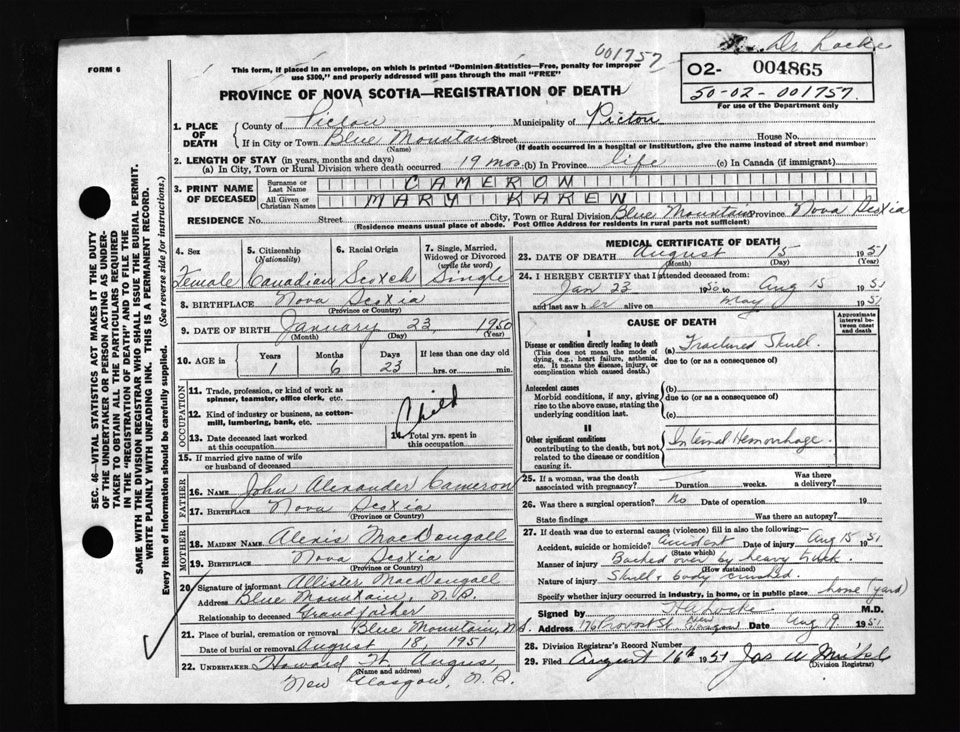 Dr Locke
FORM 6
001757
This form, if placed in an envelope, on which is printed "Dominion Statistics—Free, penalty for improper
use $300," and properly addressed will pass through the mail "FREE"
02- 004865
50-02-001757.
For use of the Department only
PROVINCE OF NOVA SCOTIA—REGISTRATION OF DEATH
1. PLACE OF DEATH
County of Pictou Municipality of Pictou
If in City or Town Blue Mountain Street House No.
(Name) (If death occurred in a hospital or institution, give the name instead of street and number)
2. LENGTH OF STAY (in years, months and days)
(a) In City, Town or Rural Division where death occurred 19 mos (b) In Province life (c) In Canada (if immigrant)
3. PRINT NAME OF DECEASED
Surname or Last Name CAMERON
All Given or Christian Names MARY KAREN
RESIDENCE No. Street City, Town or Rural Division Blue Mountain Province Nova Scotia
(Residence means usual place of abode. Post Office Address for residents in rural parts not sufficient)
4. Sex Female
5. Citizenship (Nationality) Canadian
6. Racial Origin Scotch
7. Single, Married, Widowed or Divorced (write the word) Single
8. BIRTHPLACE Nova Scotia
(Province or Country)
9. DATE OF BIRTH January 23, 1950
(Month) (Day) (Year)
10. AGE in Years Months Days If less than one day old
1 6 23 hrs. or min.
OCCUPATION
11. Trade, profession, or kind of work as spinner, teamster, office clerk, etc.
12. Kind of industry or business, as cotton-mill, lumbering, bank, etc.
Child
13. Date deceased last worked at this occupation
14. Total yrs. spent in this occupation
15. If married give name of wife or husband of deceased
FATHER
16. NAME John Alexander Cameron
17. BIRTHPLACE Nova Scotia
(Province or Country)
MOTHER
18. MAIDEN NAME Alexis MacDougall
19. BIRTHPLACE Nova Scotia
(Province or Country)
20. Signature of informant Allister MacDougall
Address Blue Mountain, N.S.
Relationship to deceased Grandfather
21. Place of burial, cremation or removal Blue Mountain, N.S.
Date of burial or removal August 18, 1951
22. UNDERTAKER Howard H. Angus,
(Name and address)
New Glasgow, N.S.
MEDICAL CERTIFICATE OF DEATH
23. DATE OF DEATH August 15 1951
(Month) (Day) (Year)
24. I HEREBY CERTIFY that I attended deceased from:
Jan 23 1950 to Aug 15 1951
and last saw her alive on May 1951
CAUSE OF DEATH
Approximate interval between onset and death
I
Disease or condition directly leading to death (a) Fractured Skull.
(This does not mean the mode of dying, e.g., heart failure, asthenia, etc. It means the disease, injury, or complication which caused death.)
due to (or as a consequence of)
Antecedent causes (b)
Morbid conditions, if any, giving rise to the above cause, stating the underlying condition last.
due to (or as a consequence of)
(c)
II
Other significant conditions contributing to the death, but not related to the disease or condition causing it.
Internal Hemorrhage.
25. If a woman, was the death associated with pregnancy? Duration weeks. Was there a delivery?
26. Was there a surgical operation? No Date of operation 19
State findings Was there an autopsy?
27. If death was due to external causes (violence) fill in also the following:—
Accident, suicide or homicide? Accident Date of injury Aug 15 1951
(State which)
Manner of injury Backed over by heavy truck.
(How sustained)
Nature of injury Skull & body crushed.
Specify whether injury occurred in industry, in home, or in public place home (yard)
Signed by H E Locke M.D.
Address 176 Provost St. New Glasgow Date Aug 19 1951
28. Division Registrar's Record Number
29. Filed August 16th 1951
(Division Registrar)
SEC. 46—VITAL STATISTICS ACT MAKES IT THE DUTY
OF THE UNDERTAKER OR PERSON ACTING AS UNDER-
TAKER TO OBTAIN ALL THE PARTICULARS REQUIRED
IN THE "REGISTRATION OF DEATH" AND TO FILE THE
SAME WITH THE DIVISION REGISTRAR WHO SHALL ISSUE THE BURIAL PERMIT.
WRITE PLAINLY WITH UNFADING INK. THIS IS A PERMANENT RECORD.
Every item of Information should be carefully supplied. (See reverse side for instructions.)